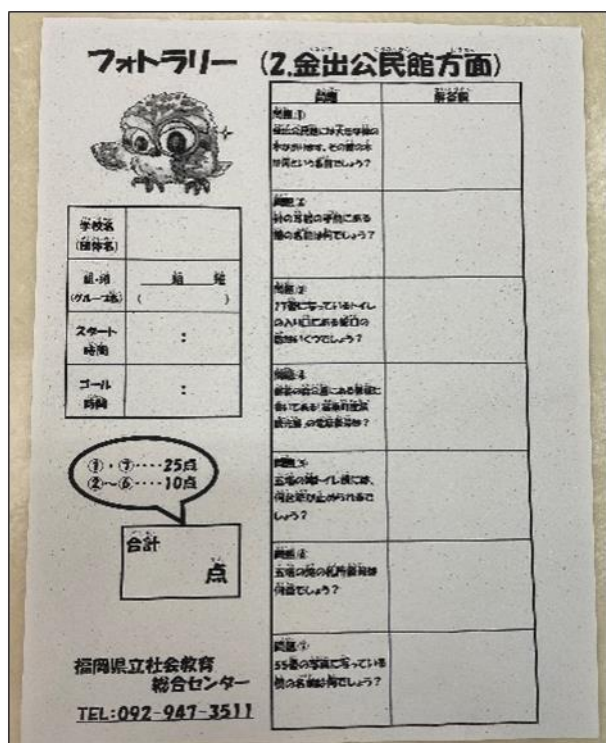 フォトラリー (2.金出公民館方面)
学校名
(団体名)
組・班
組 班
(グループ名)
( )
スタート
時間
:
ゴール
時間
:
①・⑦‥‥25点
②〜⑥‥‥10点
合計
点
福岡県立社会教育
総合センター
TEL:092-947-3511
問題
解答欄
問題①
金出公民館には大きな
木があります。その
は何という名前でしょう?
問題②
の手前にある
の名前は何でしょう?
問題③
77番になっているトイレ
の入り口にある蛇口の
数はいくつでしょう?
問題④
にある看板に
書いてある
の電話番号は?
問題⑤
トイレ横には、
何台車が止められるで
しょう?
問題⑥
の札所番号は
何番でしょう?
問題⑦
55番の写真に写っている
の名前は何でしょう?